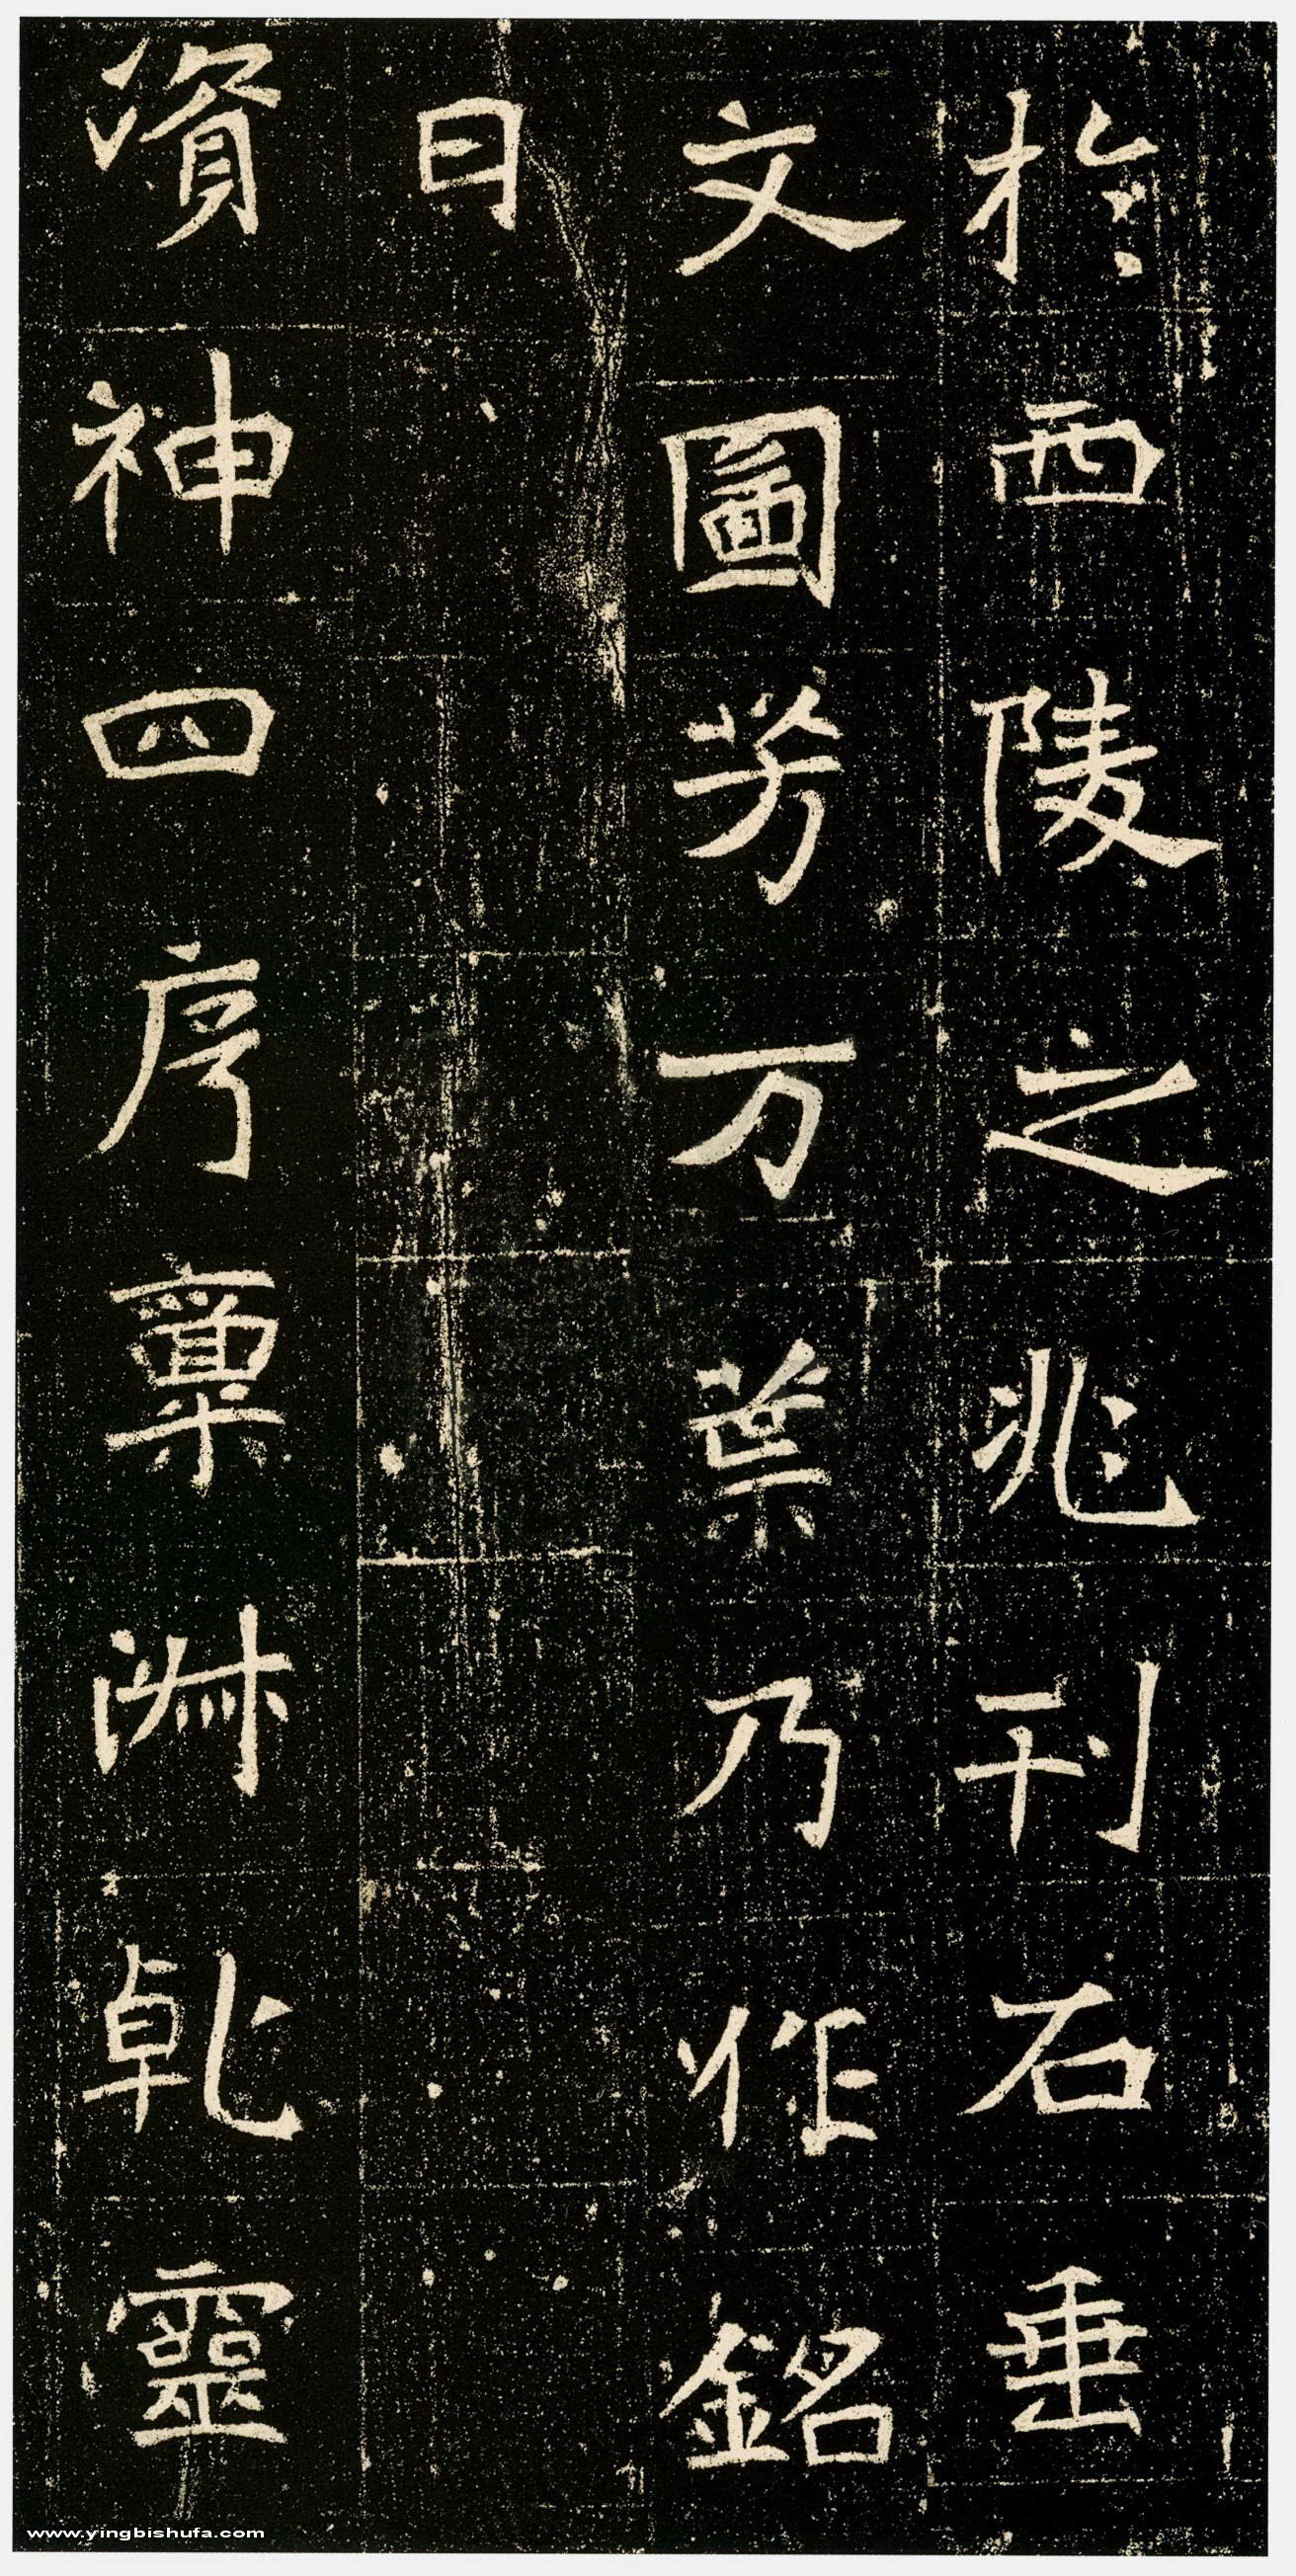 於西陵之兆刊石垂
文圖芳万葉乃作銘
曰
資神四序稟淑乾靈
www.yingbishufa.com